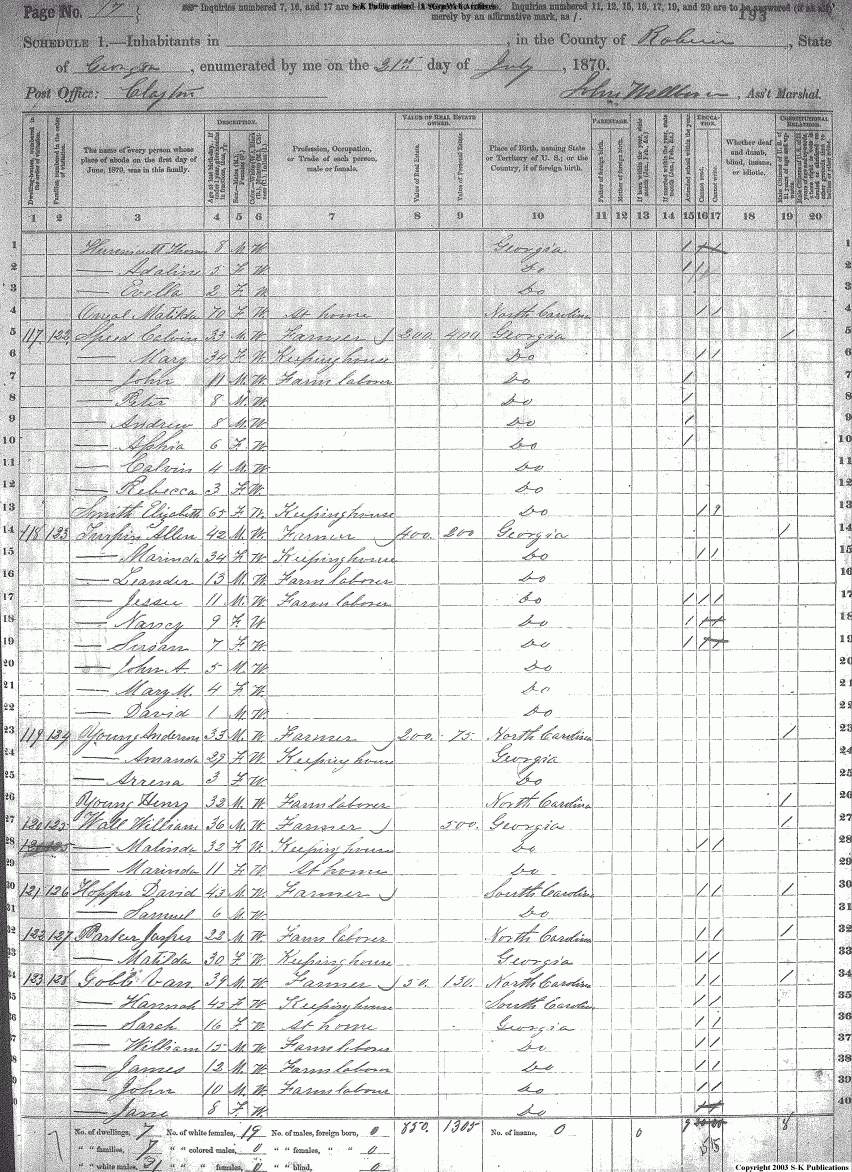 Page No. 17
Inquiries numbered 7, 16, and 17 are Inquiries numbered 11, 12, 15, 16, 17, 19, and 20 are to be answered (if at all)
merely by an affirmative mark, as /.
193
SCHEDULE 1.—Inhabitants in , in the County of Rabun , State
of Georgia , enumerated by me on the 21st day of July , 1870.
Post Office: Clayton , Ass't Marshal.
DESCRIPTION. VALUE OF REAL ESTATE OWNED. PARENTAGE. EDUCATION. CONSTITUTIONAL RELATIONS.
The name of every person whose place of abode on the first day of June, 1870, was in this family.
Profession, Occupation, or Trade of each person, male or female.
Value of Real Estate. Value of Personal Estate.
Place of Birth, naming State or Territory of U. S.; or the Country, if of foreign birth.
Father of foreign birth. Mother of foreign birth.
Attended school within the year. Cannot read. Cannot write.
Whether deaf and dumb, blind, insane, or idiotic.
1 2 3 4 5 6 7 8 9 10 11 12 13 14 15 16 17 18 19 20
1 8 M W Georgia / 1
2 — Adaline 5 F W Do / 2
3 — Evella 2 F W Do 3
4 Matilda 70 F W At home North Carolina / / 4
5 117 122 Speed Calvin 33 M W Farmer 200 400 Georgia / 5
6 — Mary 34 F W Keeping house Do / / 6
7 — John 11 M W Farm laborer Do / 7
8 — Peter 8 M W Do / 8
9 — Andrew 8 M W Do / 9
10 — Aphia 6 F W Do / 10
11 — Calvin 4 M W Do 11
12 — Rebecca 3 F W Do 12
13 Smith Elizabeth 65 F W Keeping house Do / 13
14 118 123 Turpin Allen 42 M W Farmer 400. 200 Georgia / 14
15 — Marinda 34 F W Keeping house Do / / 15
16 — Leander 13 M W Farm laborer Do 16
17 — Jessee 11 M W Farm laborer Do / / / 17
18 — Nancy 9 F W Do / 18
19 — Susan 7 F W Do / 19
20 — John A. 5 M W Do 20
21 — Mary M. 4 F W Do 21
22 — David 1 M W Do 22
23 119 124 Young Anderson 33 M W Farmer 200. 75. North Carolina / 23
24 — Amanda 27 F W Keeping house Georgia 24
25 — Arrena 3 F W Do 25
26 Young Henry 32 M W Farm laborer North Carolina / 26
27 120 125 Wall William 36 M W Farmer 500. Georgia / 27
28 — Malinda 32 F W Keeping house Do / / 28
29 — Marinda 11 F W At home Do 29
30 121 126 Hopper David 43 M W Farmer South Carolina / / / 30
31 — Samuel 6 M W Do 31
32 122 127 Parker Jasper 22 M W Farm laborer North Carolina / / / 32
33 — Matilda 30 F W Keeping house Georgia / / 33
34 123 128 Gobble Van 39 M W Farmer 50. 130. North Carolina / / / 34
35 — Hannah 45 F W Keeping house South Carolina / / 35
36 — Sarah 16 F W At home Georgia / / 36
37 — William 15 M W Farm laborer Do / / 37
38 — James 12 M W Farm labour Do / / 38
39 — John 10 M W Farm labour Do / / 39
40 — Jane 8 F W Do 40
No. of dwellings, 7 No. of white females, 19 No. of males, foreign born, 0 850. 1305 No. of insane, 0 0 9 8
" " families, 7 " " colored males, 0 " " females, " " 0
" " white males, 21 " " " females, 0 " " blind, 0
Copyright 2003 S-K Publications